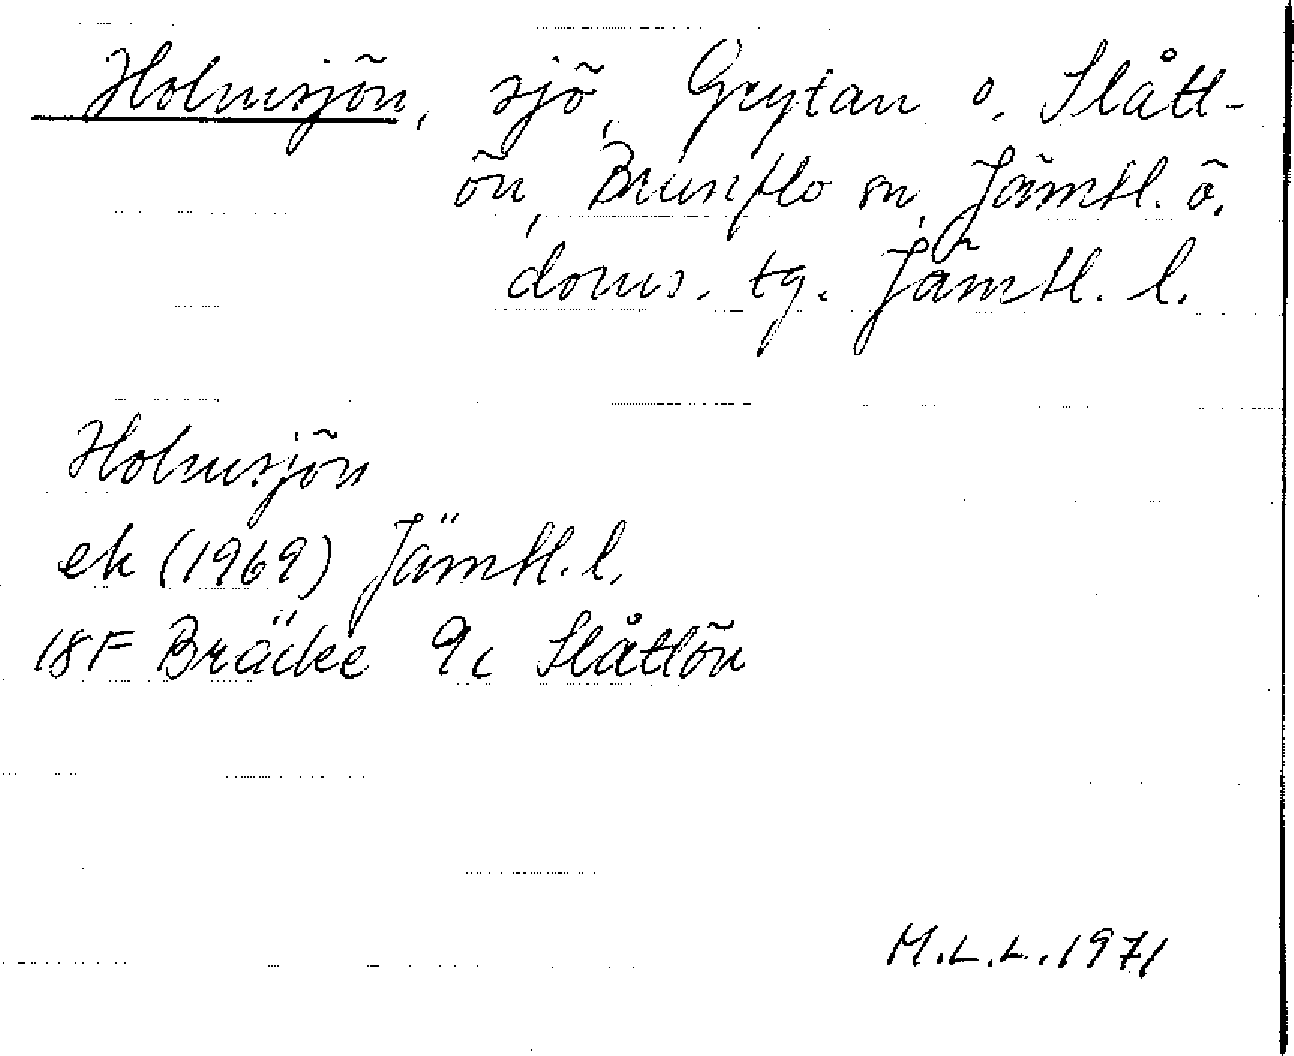 Holmsjön, sjö, Grytan o. Slått-
ön, Brunflo sn, Jämtl. ö.
doms. tg. Jämtl. l.
Holmsjön
ek (1969) Jämtl. l.
18F Bräcke 9c Slåttön
M.L.L. 1971